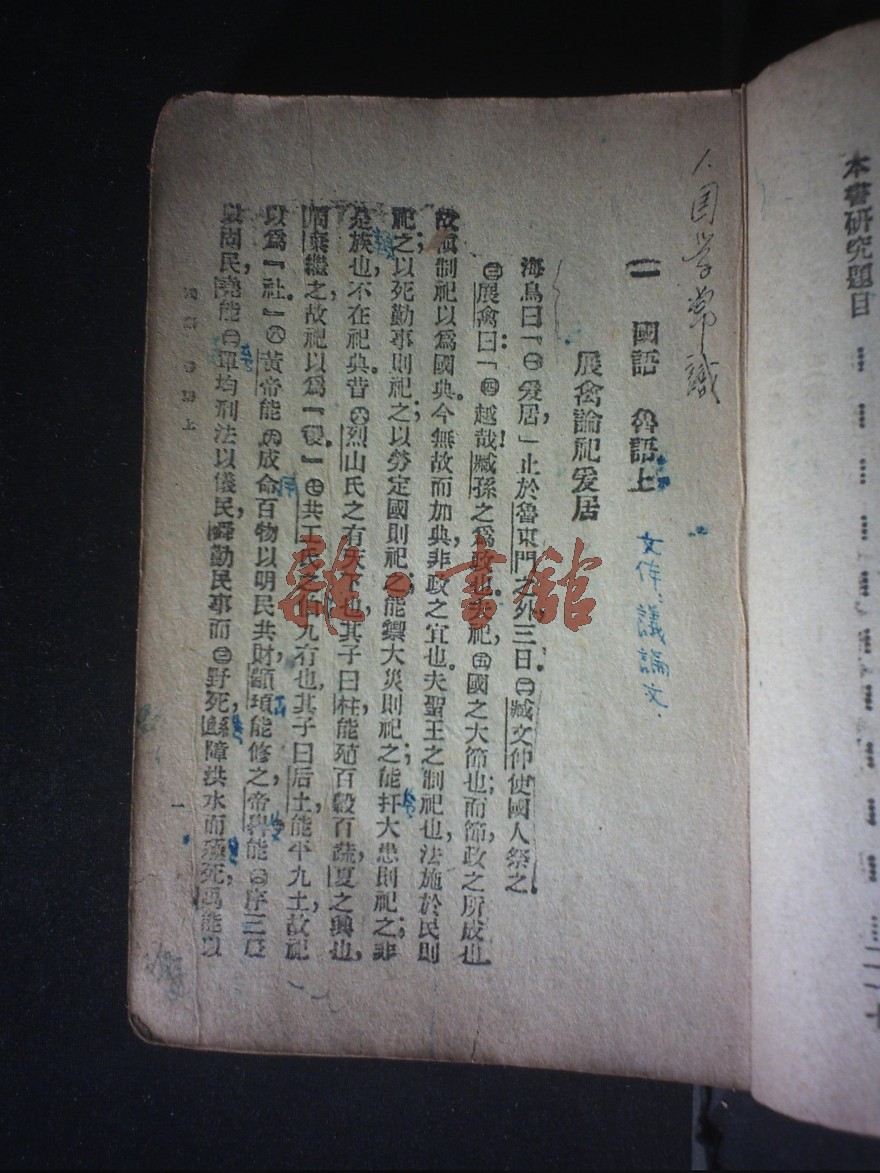 本書研究題目
国学常識
一 國語 魯語上
文体:議論文.
展禽論祀爰居
海鳥曰「㊀爰居」止於魯東門之外三日,㊁臧文仲使國人祭之。
㊂展禽曰:「㊃越哉臧孫之爲政也!夫祀,㊄國之大節也;而節政之所成也,
故愼制祀以爲國典。今無故而加典非政之宜也。夫聖王之制祀也,法施於民則
祀之;以死勤事則祀之;以勞定國則祀之;能禦大災則祀之;能扞大患則祀之;非
是族也,不在祀典。昔㊅烈山氏之有天下也,其子曰柱,能殖百穀百蔬,夏之興也,
周棄繼之,故祀以爲「稷。」㊆共工氏之伯九有也,其子曰后土,能平九土,故祀
以爲「社。」㊇黃帝能㊈成命百物以明民共財,顓頊能修之,帝嚳能序三辰
以固民,堯能㊁單均刑法以儀民,舜勤民事而㊂野死,鯀障洪水而殛死,禹能以
國語 魯語上
一
雜·書館